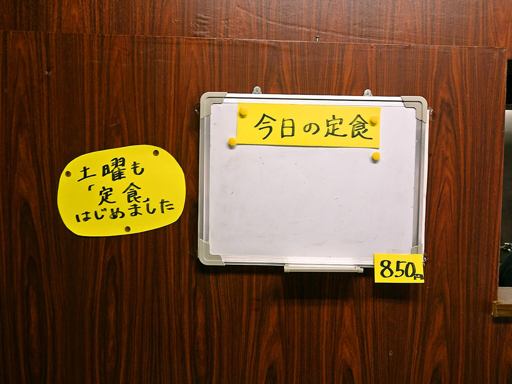 土曜も
「定食」
はじめました
今日の定食
850円